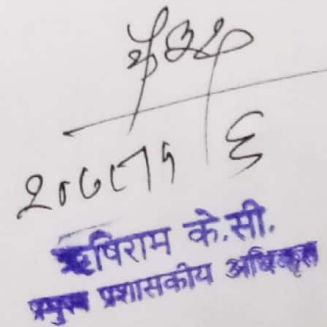 २०७८।१।६
ऋषिराम के.सी.
प्रमुख प्रशासकीय अधिकृत